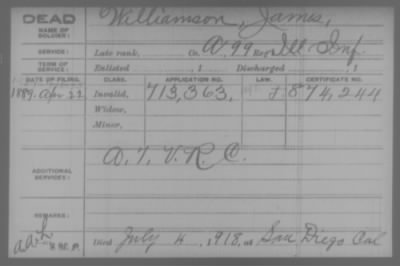 DEAD
NAME OF SOLDIER:
Williamson, James,
SERVICE:
Late rank, Co. A, 99 Reg't Ill. Inf.
TERM OF SERVICE:
Enlisted , 1 Discharged , 1
DATE OF FILING. CLASS. APPLICATION NO. LAW. CERTIFICATE NO.
1889. Apr 22 Invalid, 713,363, 874,244
Widow,
Minor,
ADDITIONAL SERVICES:
A, 7, V.R.C.
REMARKS:
Died July 4, 1918, at San Diego Cal